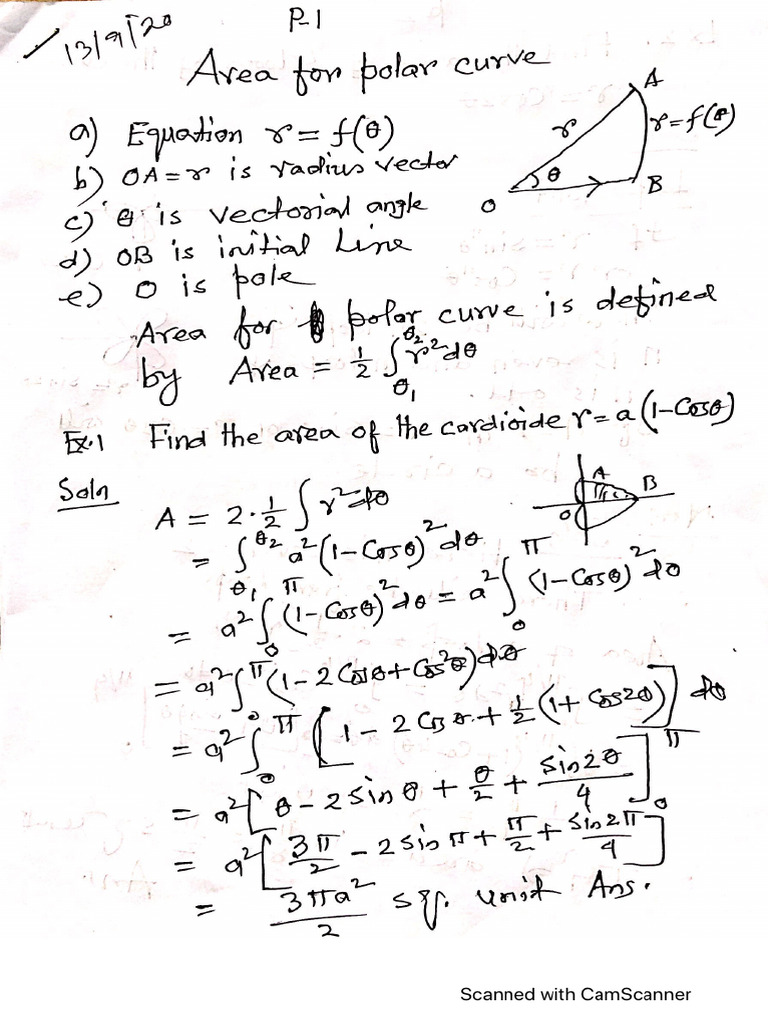 13/9/20
P-1
Area for polar curve
a) Equation r = f(θ)
b) OA = r is radius vector
c) θ is vectorial angle
d) OB is initial Line
e) O is pole
A
r
r = f(θ)
θ
O
B
Area for polar curve is defined
by Area = 1/2 ∫_θ₁^θ₂ r² dθ
Ex.1 Find the area of the cardioide r = a(1-Cosθ)
Soln
A
B
O
A = 2·1/2 ∫ r² dθ
= ∫_θ₁^θ₂ a² (1-Cosθ)² dθ
= a² ∫_0^π (1-Cosθ)² dθ = a² ∫_0^π (1-Cosθ)² dθ
= a² ∫_0^π (1-2Cosθ+Cos²θ) dθ
= a² ∫_0^π [1-2Cosθ+1/2(1+Cos2θ)] dθ
= a² [θ-2sinθ+θ/2+sin2θ/4]_0^π
= a² [3π/2-2sinπ+π/2+sin2π/4]
= 3πa²/2 sq. unit Ans.
Scanned with CamScanner